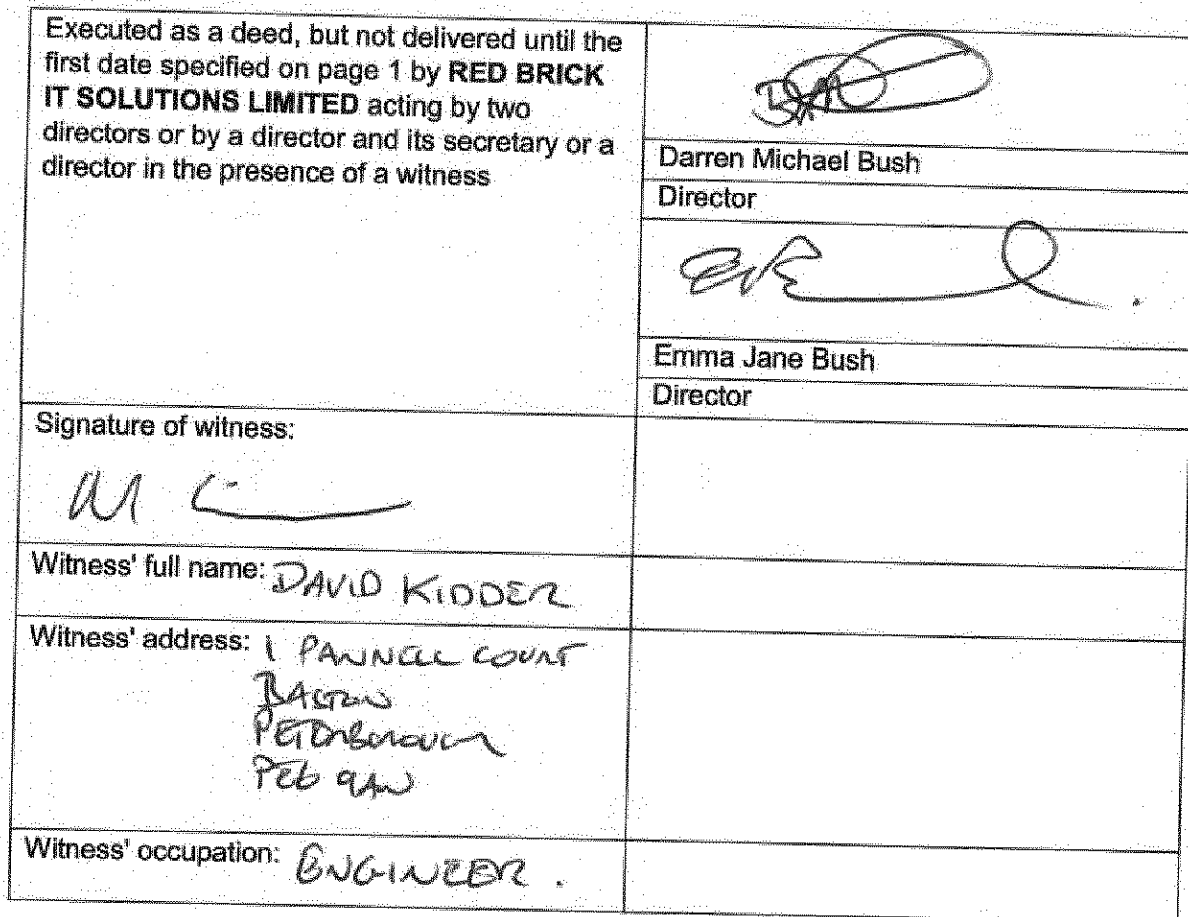 Executed as a deed, but not delivered until the
first date specified on page 1 by RED BRICK
IT SOLUTIONS LIMITED acting by two
directors or by a director and its secretary or a
director in the presence of a witness
Darren Michael Bush
Director
Emma Jane Bush
Director
Signature of witness:
Witness' full name: DAVID KIDDER
Witness' address: 1 PANNELL COURT
BASTON
PETERBOROUGH
PE6 9AW
Witness' occupation: ENGINEER.